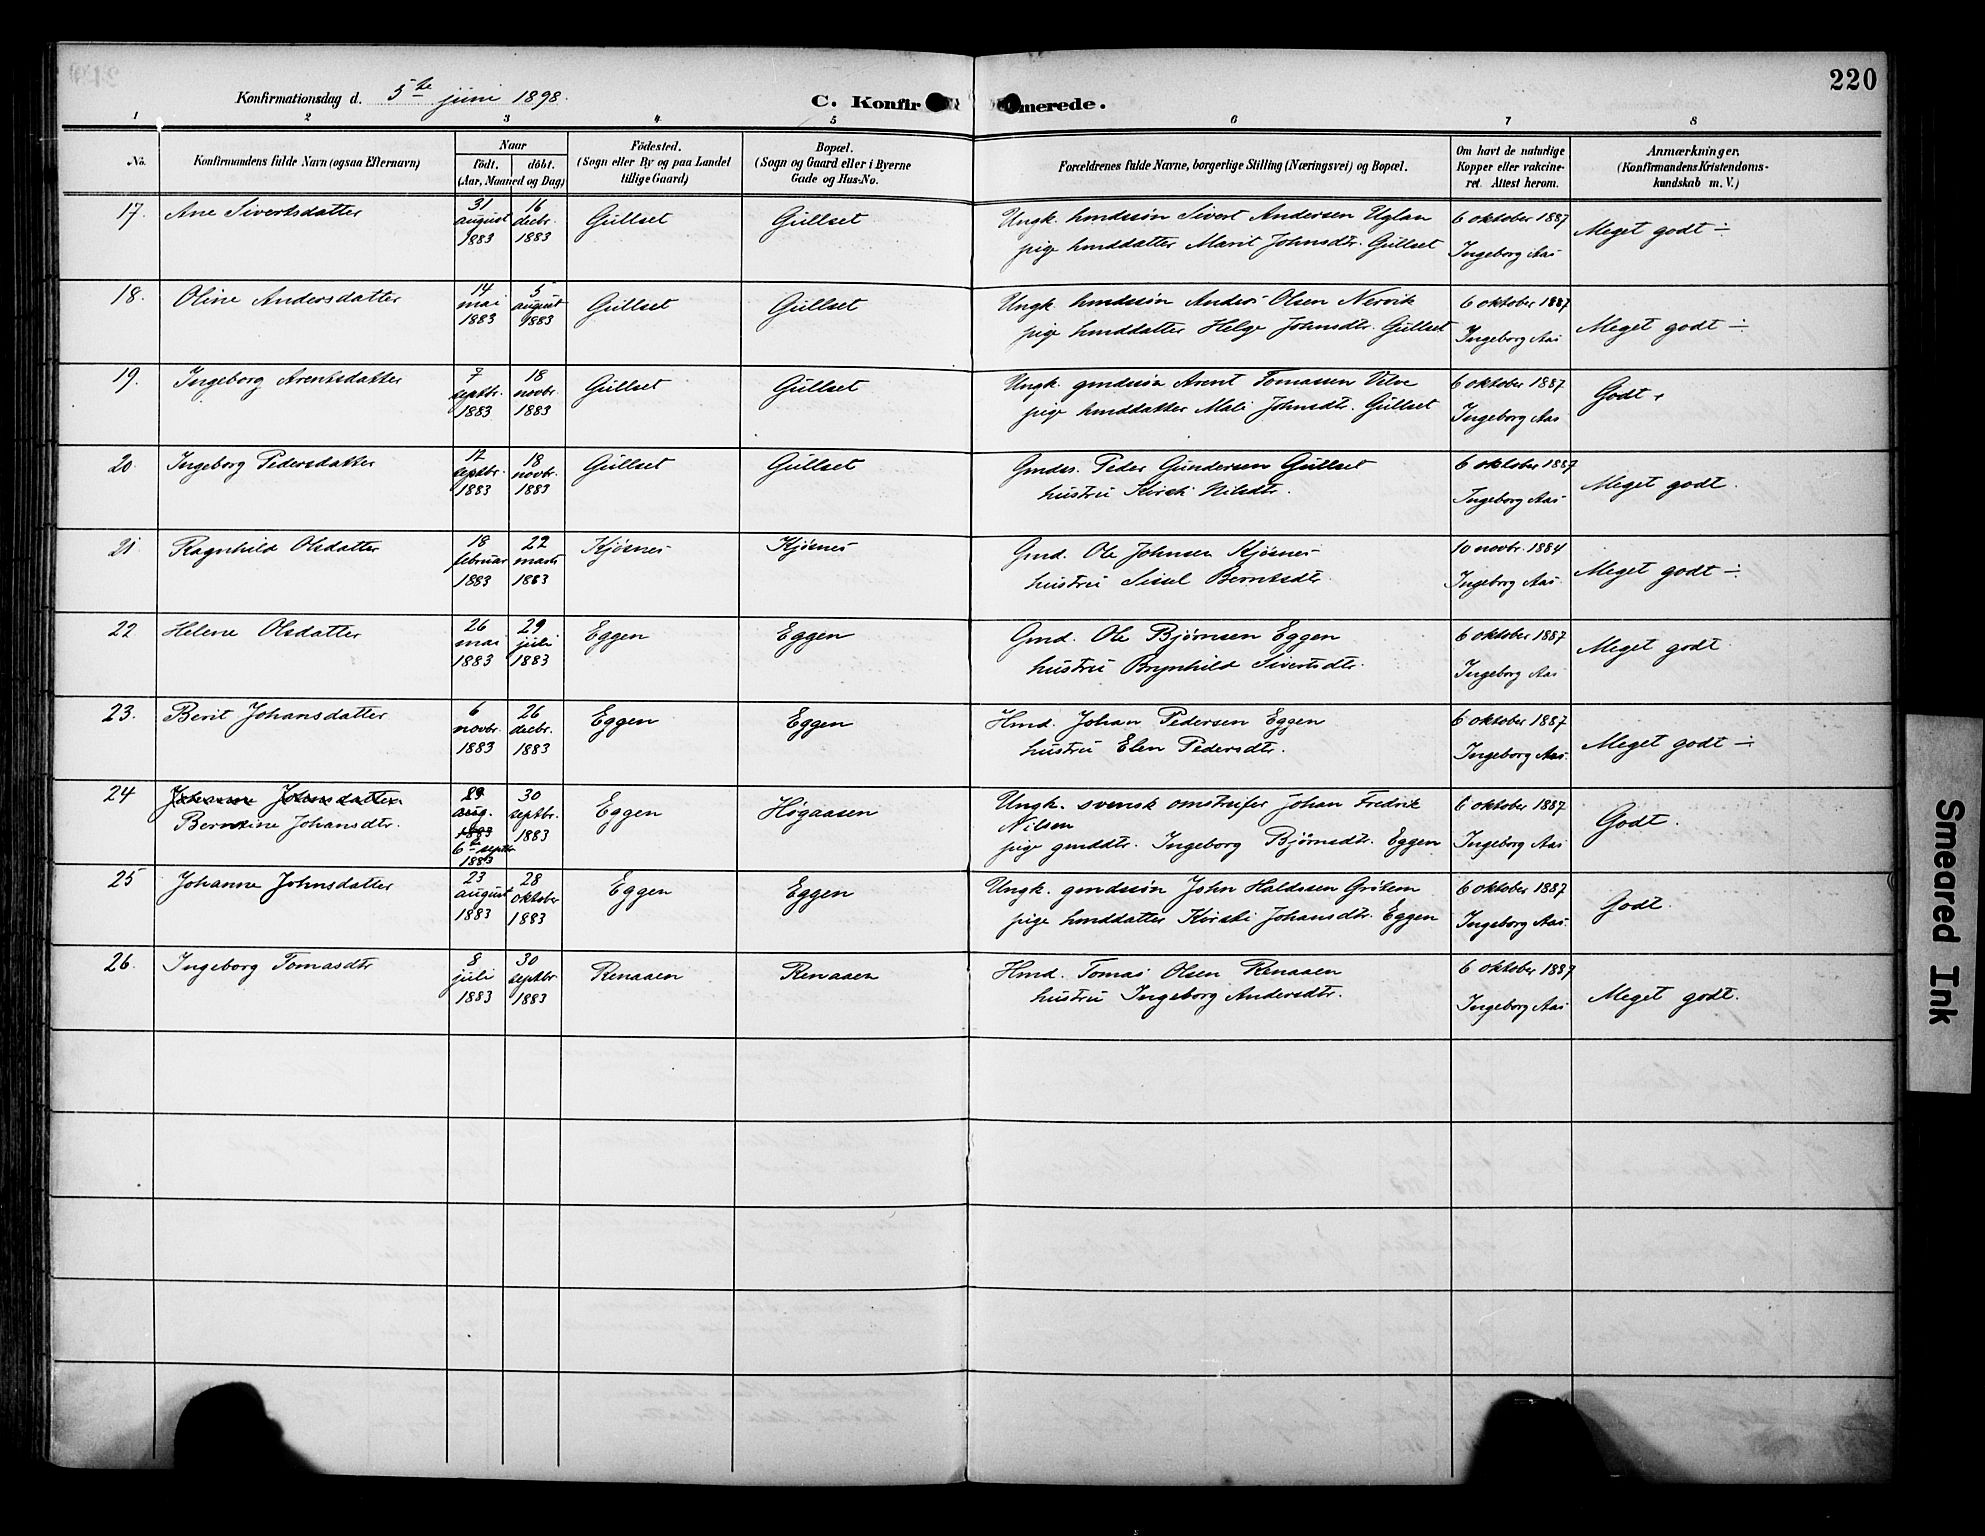 220
Konfirmationsdag d. 5te juni 1898.
C. Konfir merede.
1 2 3 4 5 6 7 8
No. Konfirmandens fulde Navn (ogsaa Efternavn) Naar födt. döbt. (Aar, Maaned og Dag) Födested. (Sogn eller By og paa Landet tillige Gaard) Bopæl. (Sogn og Gaard eller i Byerne Gade og Hus-No. Forældrenes fulde Navne, borgerlige Stilling (Næringsvei) og Bopæl. Om havt de naturlige Kopper eller vakcineret. Attest herom. Anmærkninger. (Konfirmandens Kristendomskundskab m. V.)
17. Ane Sivertsdatter 31 august 1883 16 decbr. 1883 Gullset Gullset Ungk. hmdssøn Sivert Andersen Uglan
pige hmddatter Marit Johnsdtr. Gullset 6 oktober 1887 Ingeborg Aas Meget godt ÷
18. Oline Andersdatter 14 mai 1883 5 august 1883 Gullset Gullset Ungk. hmdssøn Anders Olsen Nervik
pige hmddatter Helge Johnsdtr. Gullset 6 oktober 1887 Ingeborg Aas Meget godt ÷
19. Ingeborg Arentsdatter 7 septbr. 1883 18 novbr. 1883 Gullset Gullset Ungk. gmdssøn Arent Tomassen Velve
pige hmddatter Mali Johnsdtr. Gullset 6 oktober 1887 Ingeborg Aas Godt
20. Ingeborg Pedersdatter 12 septbr. 1883 18 novbr. 1883 Gullset Gullset Gmdes. Peder Gundersen Gullset
hustru Kirsti Nilsdtr. 6 oktober 1887 Ingeborg Aas Meget godt.
21 Ragnhild Olsdatter 18 februar 1883 22 marts 1883 Kjøsnes Kjøsnes Gmd. Ole Johnsen Kjøsnes
hustru Sissel Berntsdtr. 10 novbr. 1884 Ingeborg Aas Meget godt ÷
22 Helene Olsdatter 26 mai 1883 29 juli 1883 Eggen Eggen Gmd. Ole Bjørnsen Eggen
hustru Brynhild Sivertsdtr. 6 oktober 1887 Ingeborg Aas Meget godt.
23. Berit Johansdatter 6 novbr. 1883 26 decbr. 1883 Eggen Eggen Hmd. Johan Pedersen Eggen
hustru Elen Pedersdtr. 6 oktober 1887 Ingeborg Aas. Meget godt ÷
24 Johanne Johnsdatter
Berntine Johansdtr. 29 aug. 1883 6te septbr 1883 30 septbr. 1883 Eggen Høgaasen Ungk. svensk omstreifer Johan Fredrik
Nilsen
pige gmddtr. Ingeborg Bjørnsdtr. Eggen 6 oktober 1887 Ingeborg Aas Godt.
25 Johanne Johnsdatter 23 august 1883 28 oktober 1883 Eggen Eggen Ungk. gmdssøn John Haldssen Grötem
pige hmddatter Kirsti Johansdtr. Eggen 6 oktober 1887 Ingeborg Aas. Godt.
26. Ingeborg Tomasdtr 8 juli 1883 30 septbr 1883 Renaaen Renaaen Hmd. Tomas Olsen Renaaen
hustru Ingeborg Andersdtr. 6 oktober 1887 Ingeborg Aas Meget godt.
Smeared Ink